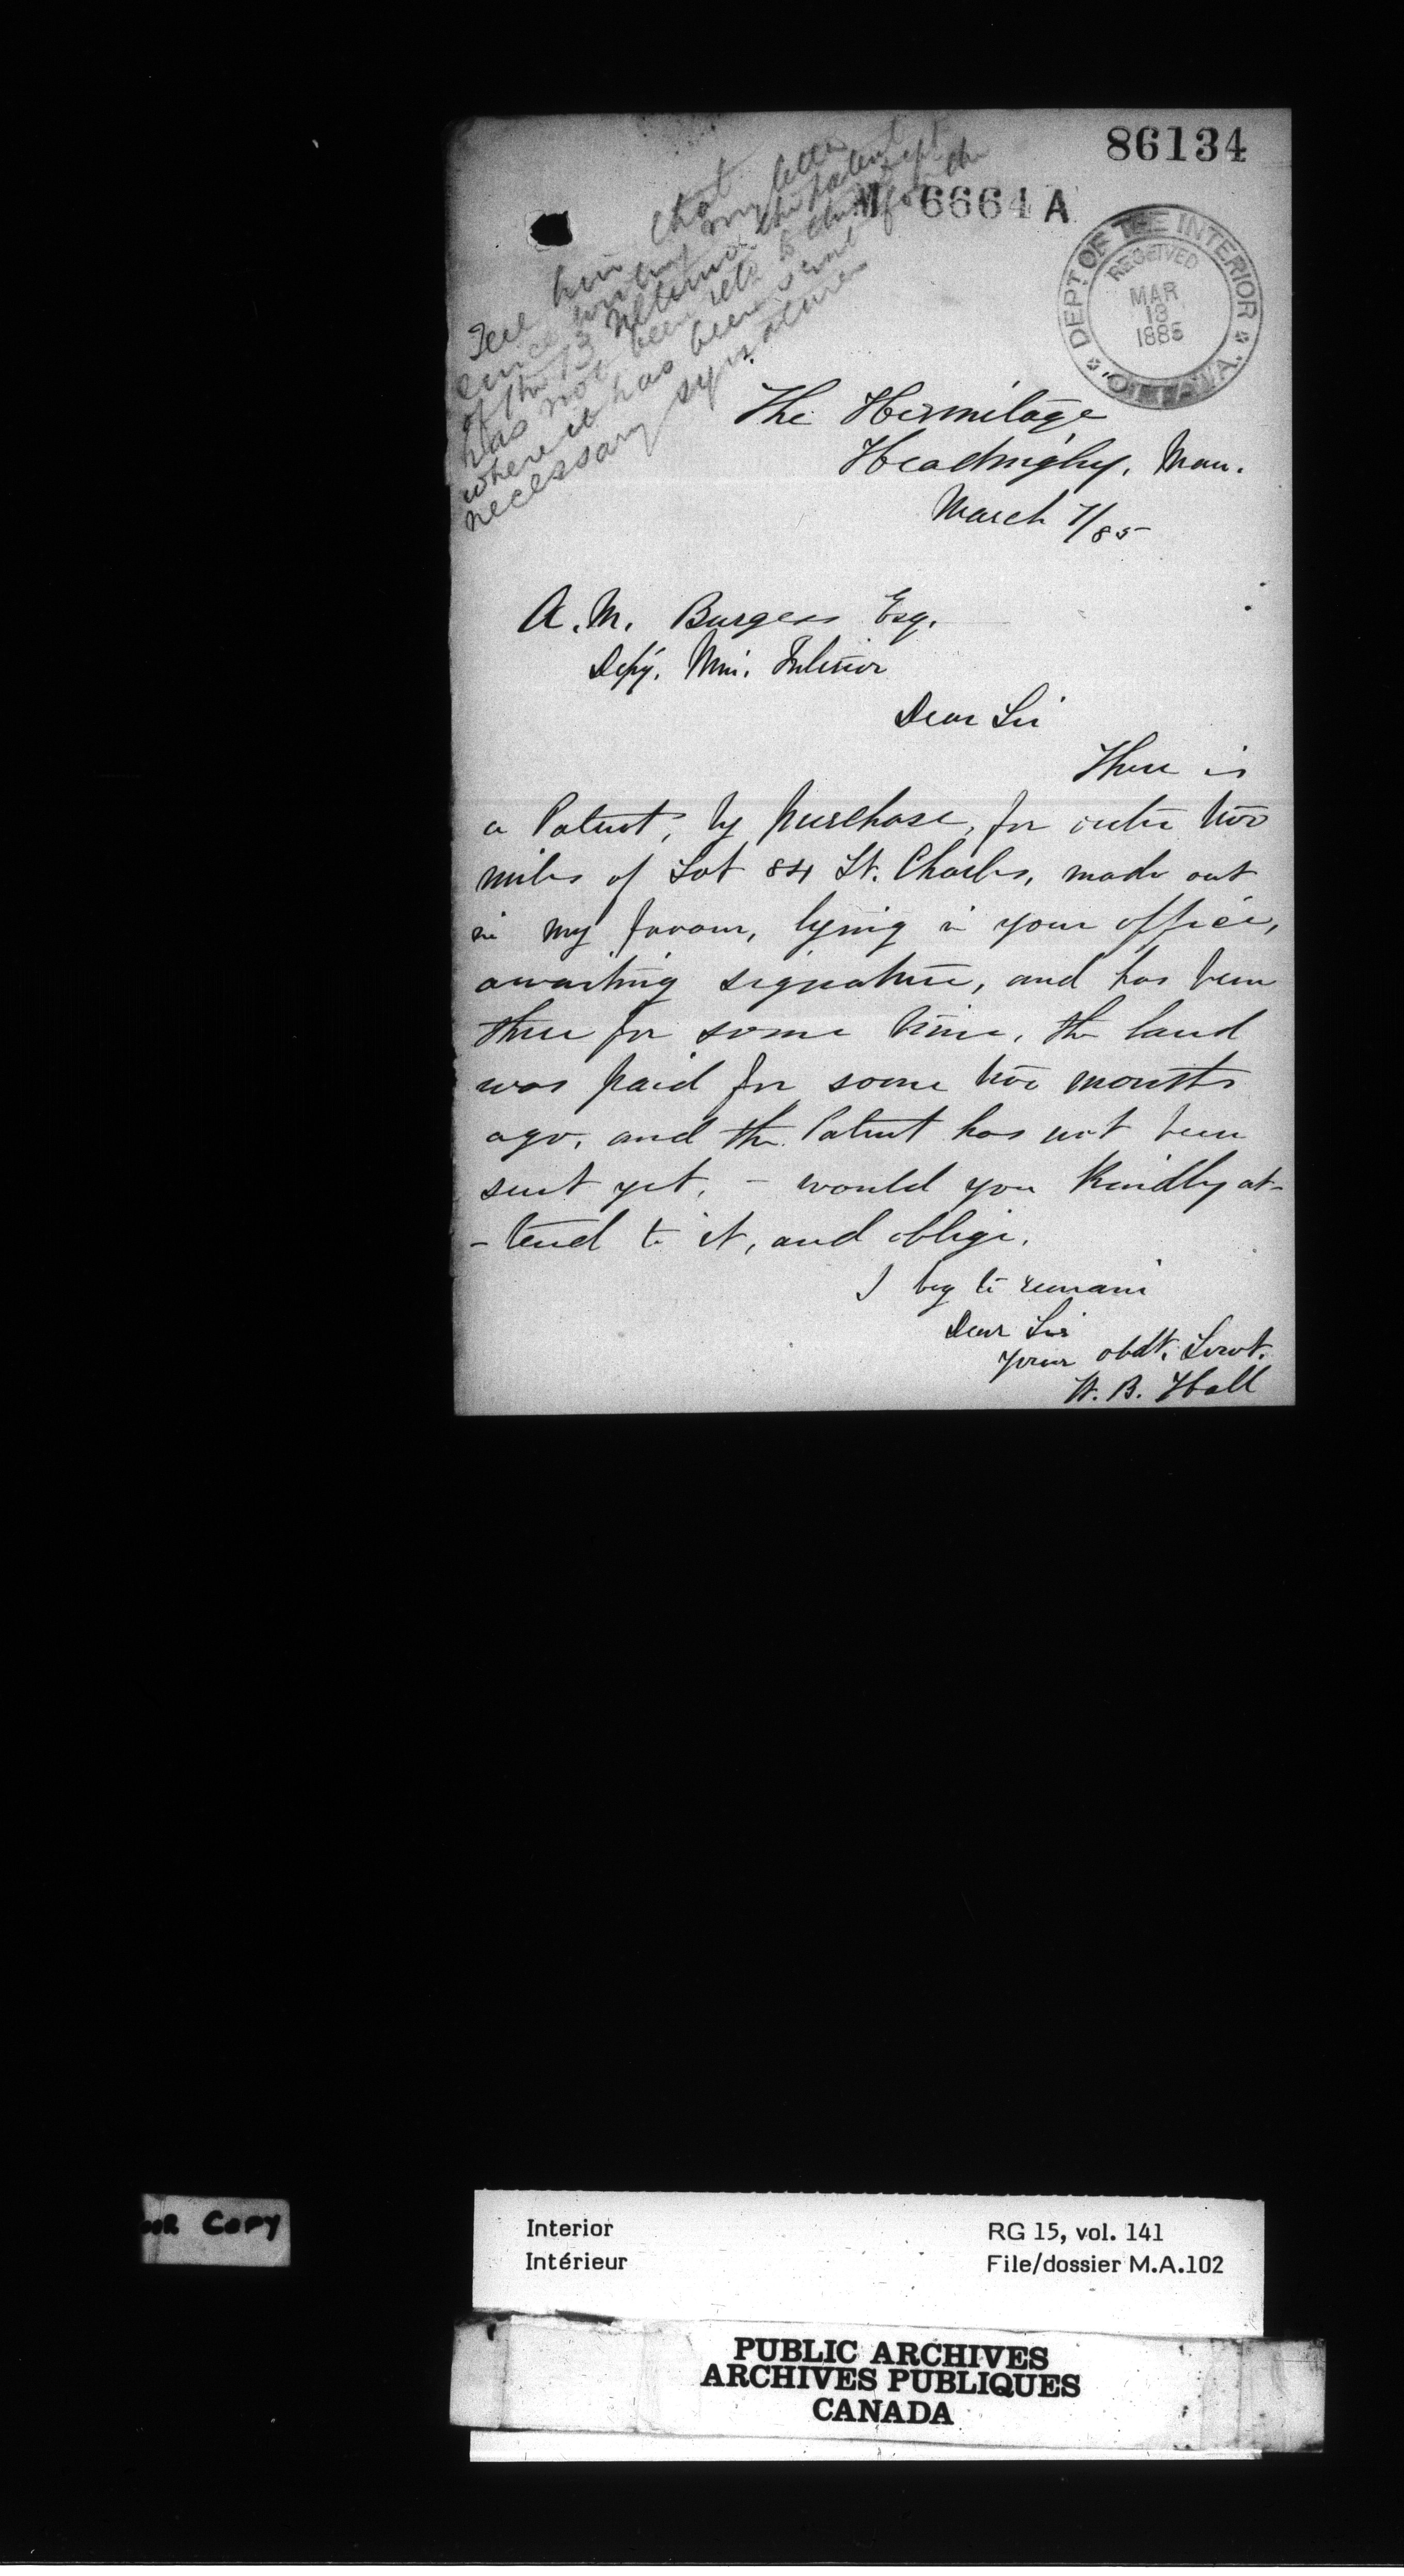 86134
M 6664 A
DEPT OF THE INTERIOR
RECEIVED
MAR
18
1885
OTTAWA
Tell him that
since writing my letter
of the 13 ultimo the patent
has not been retd to this dept
where it has been sent for the
necessary signature
The Hermitage
Headingly, Man.
March 7/85
A. M. Burgess Esq.
Depy. Min. Interior
Dear Sir
There is
a Patent, by purchase, for outer two
miles of Lot 84 St. Charles, made out
in my favour, lying in your office,
awaiting signature, and has been
there for some time, the land
was paid for some two months
ago, and the Patent has not been
sent yet, - would you kindly at-
-tend to it, and oblige.
I beg to remain
Dear Sir
your obdt. Servt.
W. B. Hall
OOR COPY
Interior
Intérieur
RG 15, vol. 141
File/dossier M.A.102
PUBLIC ARCHIVES
ARCHIVES PUBLIQUES
CANADA